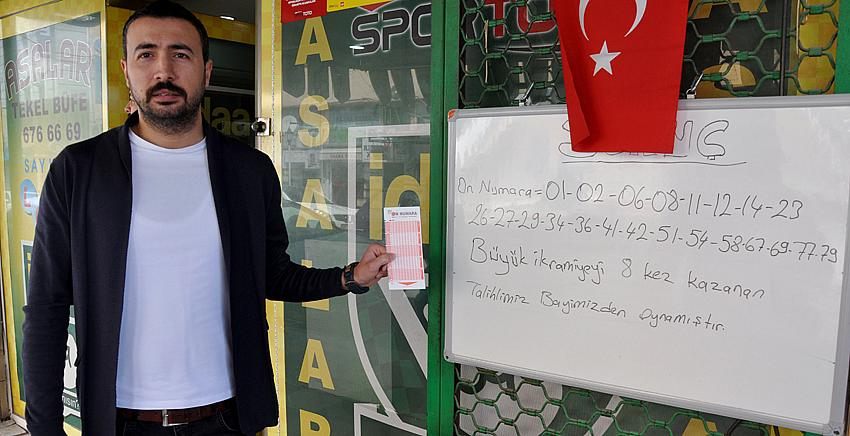 ASALAR
TEKEL BÜFE
676 66 69
SPOR TO
ASALAR
ON NUMARA
On Numara = 01-02-06-08-11-12-14-23
26-27-29-34-36-41-42-51-54-58-67-69-77-79
Büyük ikramiyeyi 8 kez kazanan
Talihlimiz Bayimizden Oynamıştır.